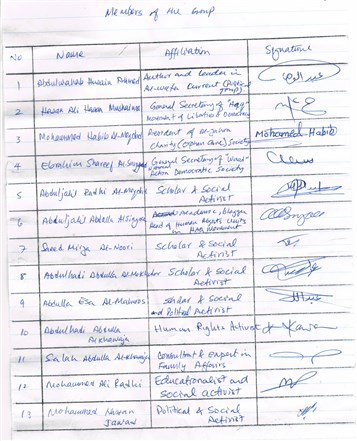 Members of the Group
No Name Affiliation Signature
1 Abdulwahab Husain Ahmed Author and leader in Al-wafa Current
2 Hasan Ali Hasan Mushaima General Secretary of "Haq" Movement of Liberties & Democracy
3 Mohammed Habib Al-Meqdad President of Al- Charity (orphan care) Society Mohamed Habib
4 Ebrahim Shareef Al- General Secretary of Democratic Society
5 Abduljalil Radhi Al-Meqdad Scholar & Social Activist
6 Abduljalil Abdulla Al Academic, blogger Head of Human Rights Units in Haq Movement
7 Saeed Mirza Al-Noori Scholar & Social Activist
8 Abdulhadi Abdulla Scholar & Social Activist
9 Abdulla Esa Al-Mahroos Scholar & Social and Political Activist
10 Abdulhadi Abdulla Alkhawaja Human Rights Activist
11 Salah Abdulla Alkhawaja Consultant & expert on Family Affairs
12 Mohammed Ali Radhi Educationalist and social activist
13 Mohammed Hasan Jawad Political & Social Activist